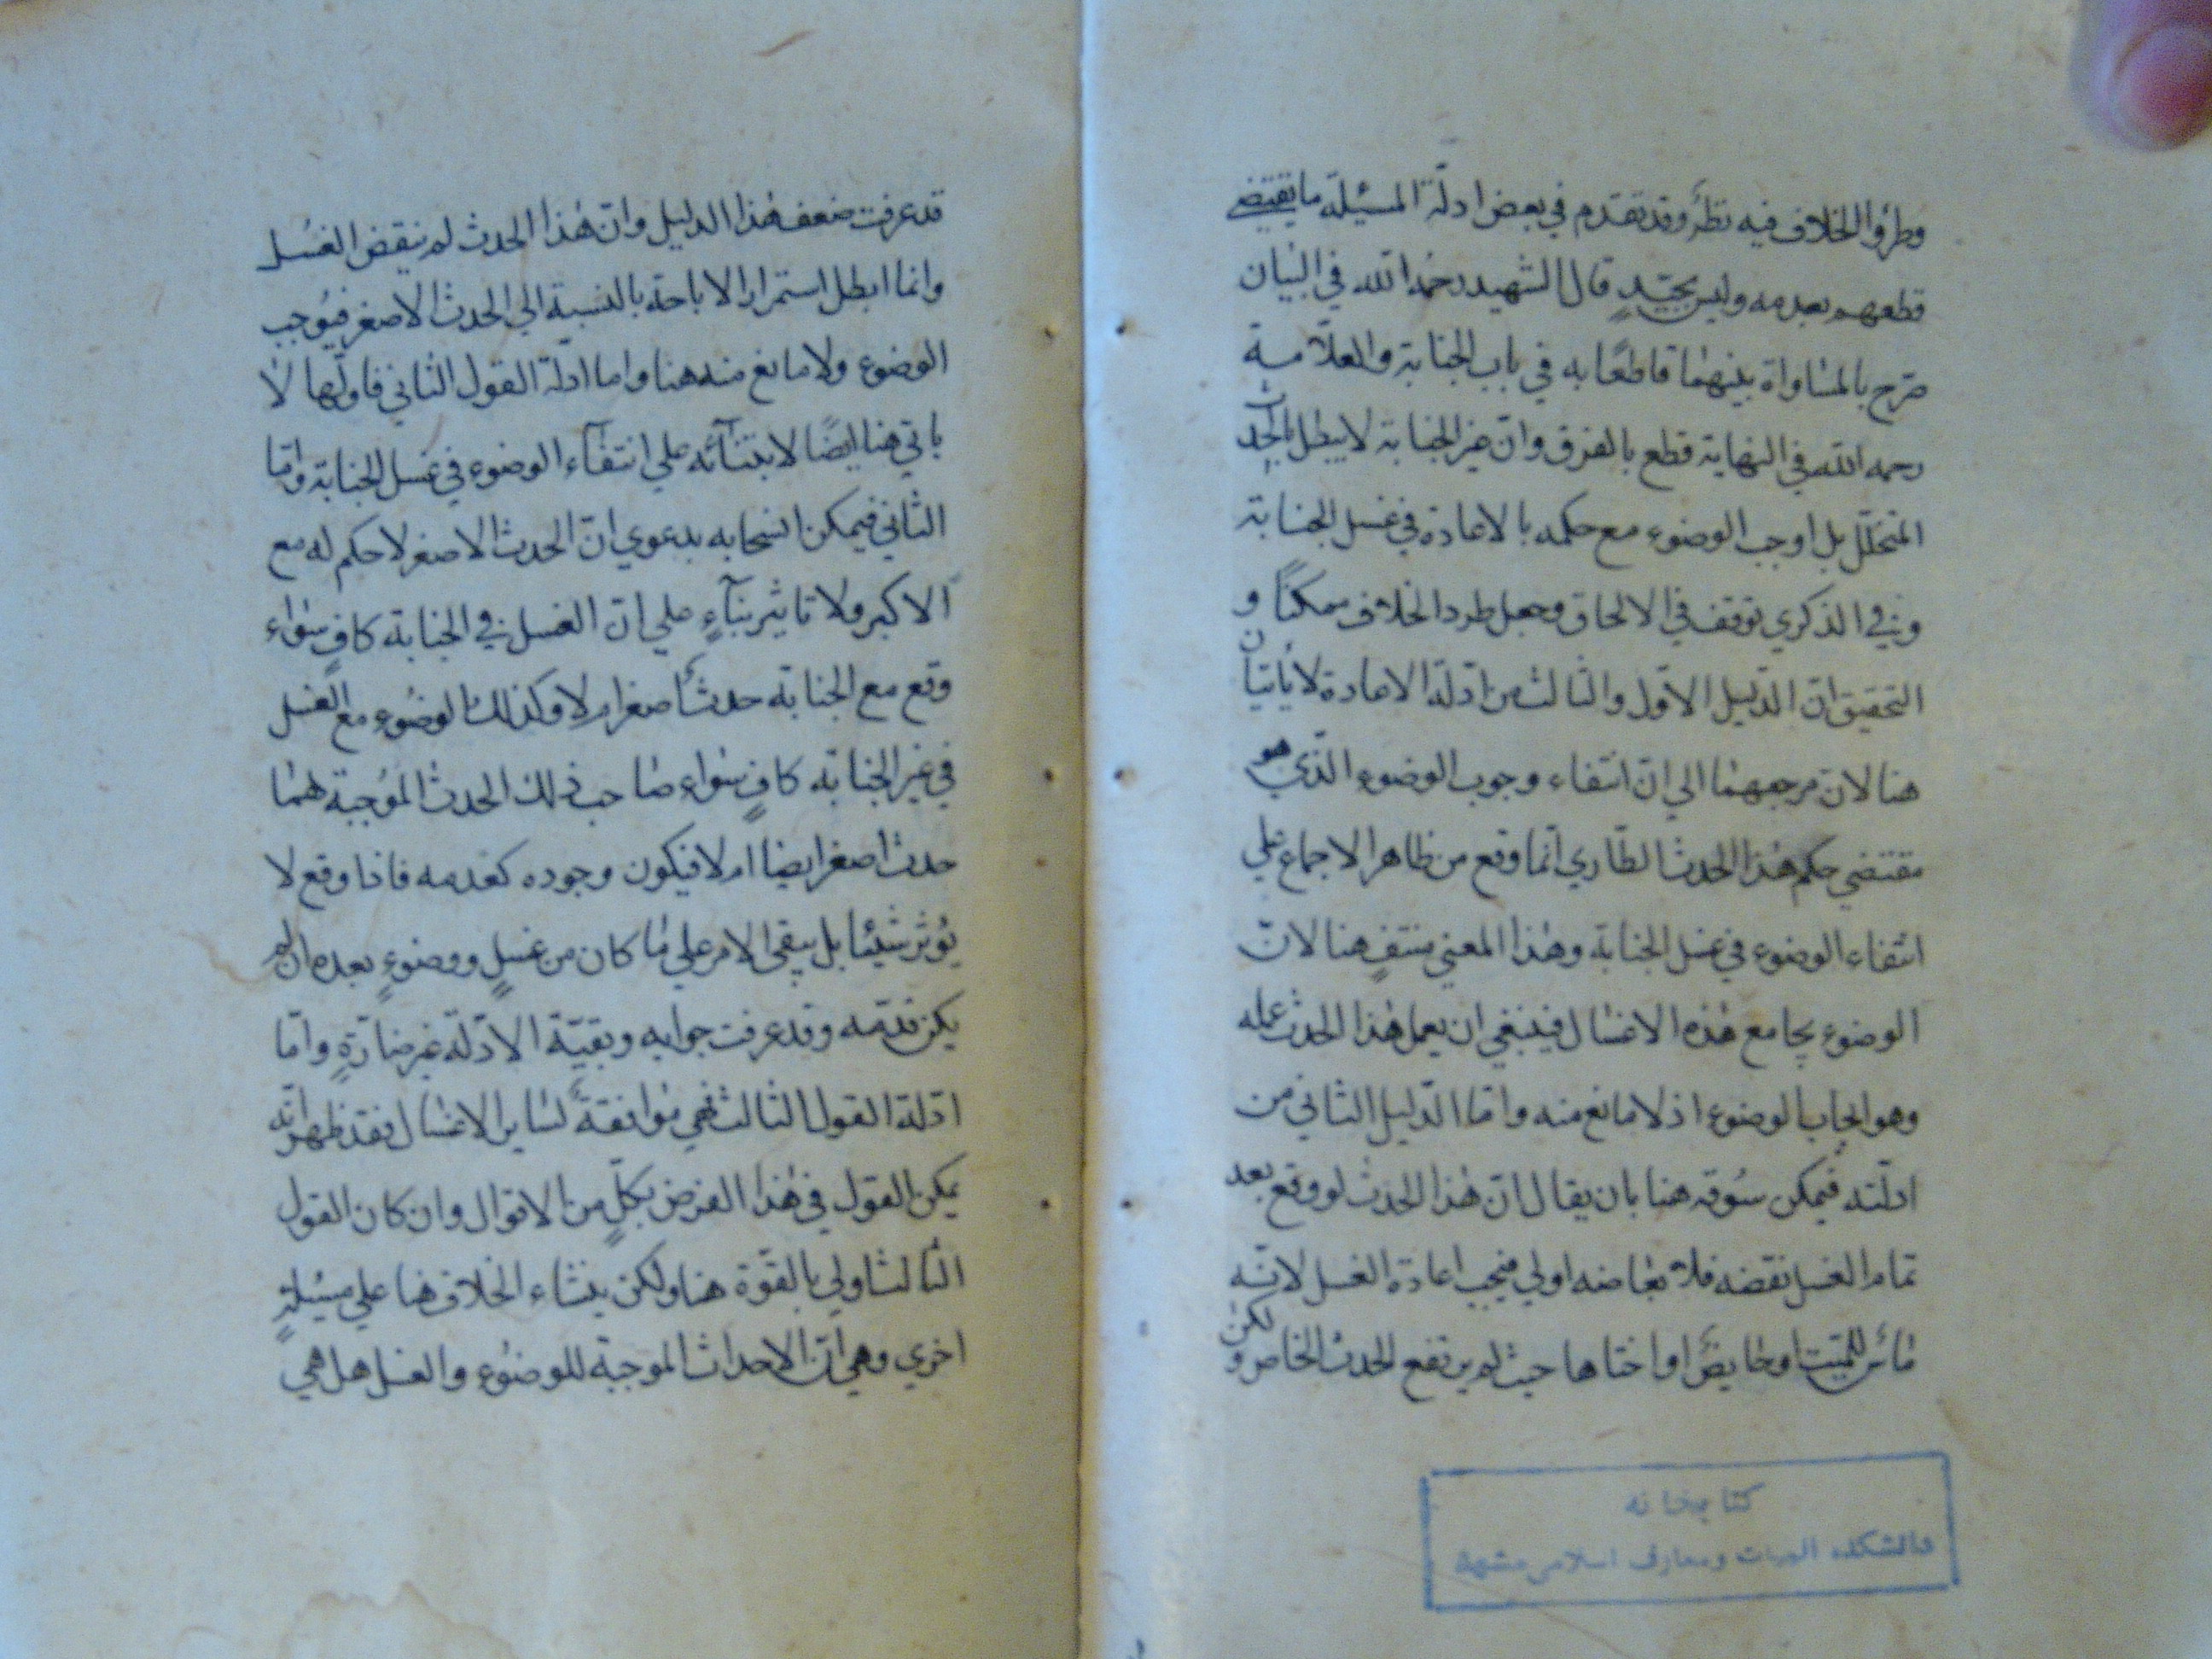 وطرؤا الخلاف فيه نظرٌ وقد تقدم في بعض ادلّة المسئلة ما يقتضي
قطعهم بعدمه وليس بجيّدٍ قال الشهيد رحمه الله في البيان
صرّح بالمساواة بينهما قاطعًا به في باب الجنابة والعلّامة
رحمه الله في النهاية قطع بالفرق وانّ غير الجنابة لا يبطل بالحدث
المتخلّل بل اوجب الوضوء مع حكمه بالاعادة في غسل الجنابة
وفي الذكري توقف في الالحاق وجعل طرد الخلاف ممكنًا و
التحقيق انّ الدّليل الاوّل والثالث من ادلّة الاعادة لا يأتيان
هنا لانّ مرجعهما الي انّ انتفاء وجوب الوضوء الّذي هو
مقتضي حكم هذا الحدث الطّاري انّما وقع من ظاهر الاجماع علي
انتفاء الوضوء في غسل الجنابة وهذا المعني منتفٍ هنا لانّ
الوضوء يجامع هذه الاغسال فينبغي ان يعمل هذا الحدث عمله
وهو ايجاب الوضوء اذ لا مانع منه وامّا الدّليل الثاني من
ادلّته فيمكن سوقه هنا بان يقال انّ هذا الحدث لو وقع بعد
تمام الغسل نقضه فلابعاضه اولي فيجب اعادة الغسل لانّه
للميّت او حايض او اختاها حيث لم يرتفع الحدث الخاص و لكن
قد عرفت ضعف هذا الدليل وانّ هذا الحدث لم ينقض الغسل
وانما ابطل استمرار الاباحة بالنسبة الي الحدث الاصغر فيوجب
الوضوء ولا مانع منه هنا واما ادلّة القول الثاني فاولها لا
ياتي هنا ايضًا لابتنآئه علي انتفآء الوضوء في غسل الجنابة وامّا
الثاني فيمكن انسحابه بدعوي انّ الحدث الاصغر لا حكم له مع
الاكبر ولا تاثير بنآءٍ علي انّ الغسل في الجنابة كافٍ سواء
وقع مع الجنابة حدثٌ اصغر ام لا وكذلك الوضوء مع الغسل
في غير الجنابة كافٍ سواء صاحب ذلك الحدث الموجبة لهما
حدث اصغر ايضا ام لا فيكون وجوده كعدمه فاذا وقع لا
يؤثر شيئا بل يبقي الامر علي ما كان من غسلٍ ووضوءٍ بعده ان لم
يكن قدّمه وقد عرفت جوابه وبقيّة الادلّة غير ضارّةٍ وامّا
ادلّة القول الثالث فهي موافقةٌ لساير الاغسال فقد ظهر انّه
يمكن القول في هذا الفرض بكلٍّ من الاقوال وان كان القول
الثالث اولي بالقوّة هنا ولكن ينشاء الخلاف هنا علي مسئلةٍ
اخري وهي انّ الاحداث الموجبة للوضوء والغسل هل هي
كتابخانه
دانشكده الهيات ومعارف اسلامى مشهد